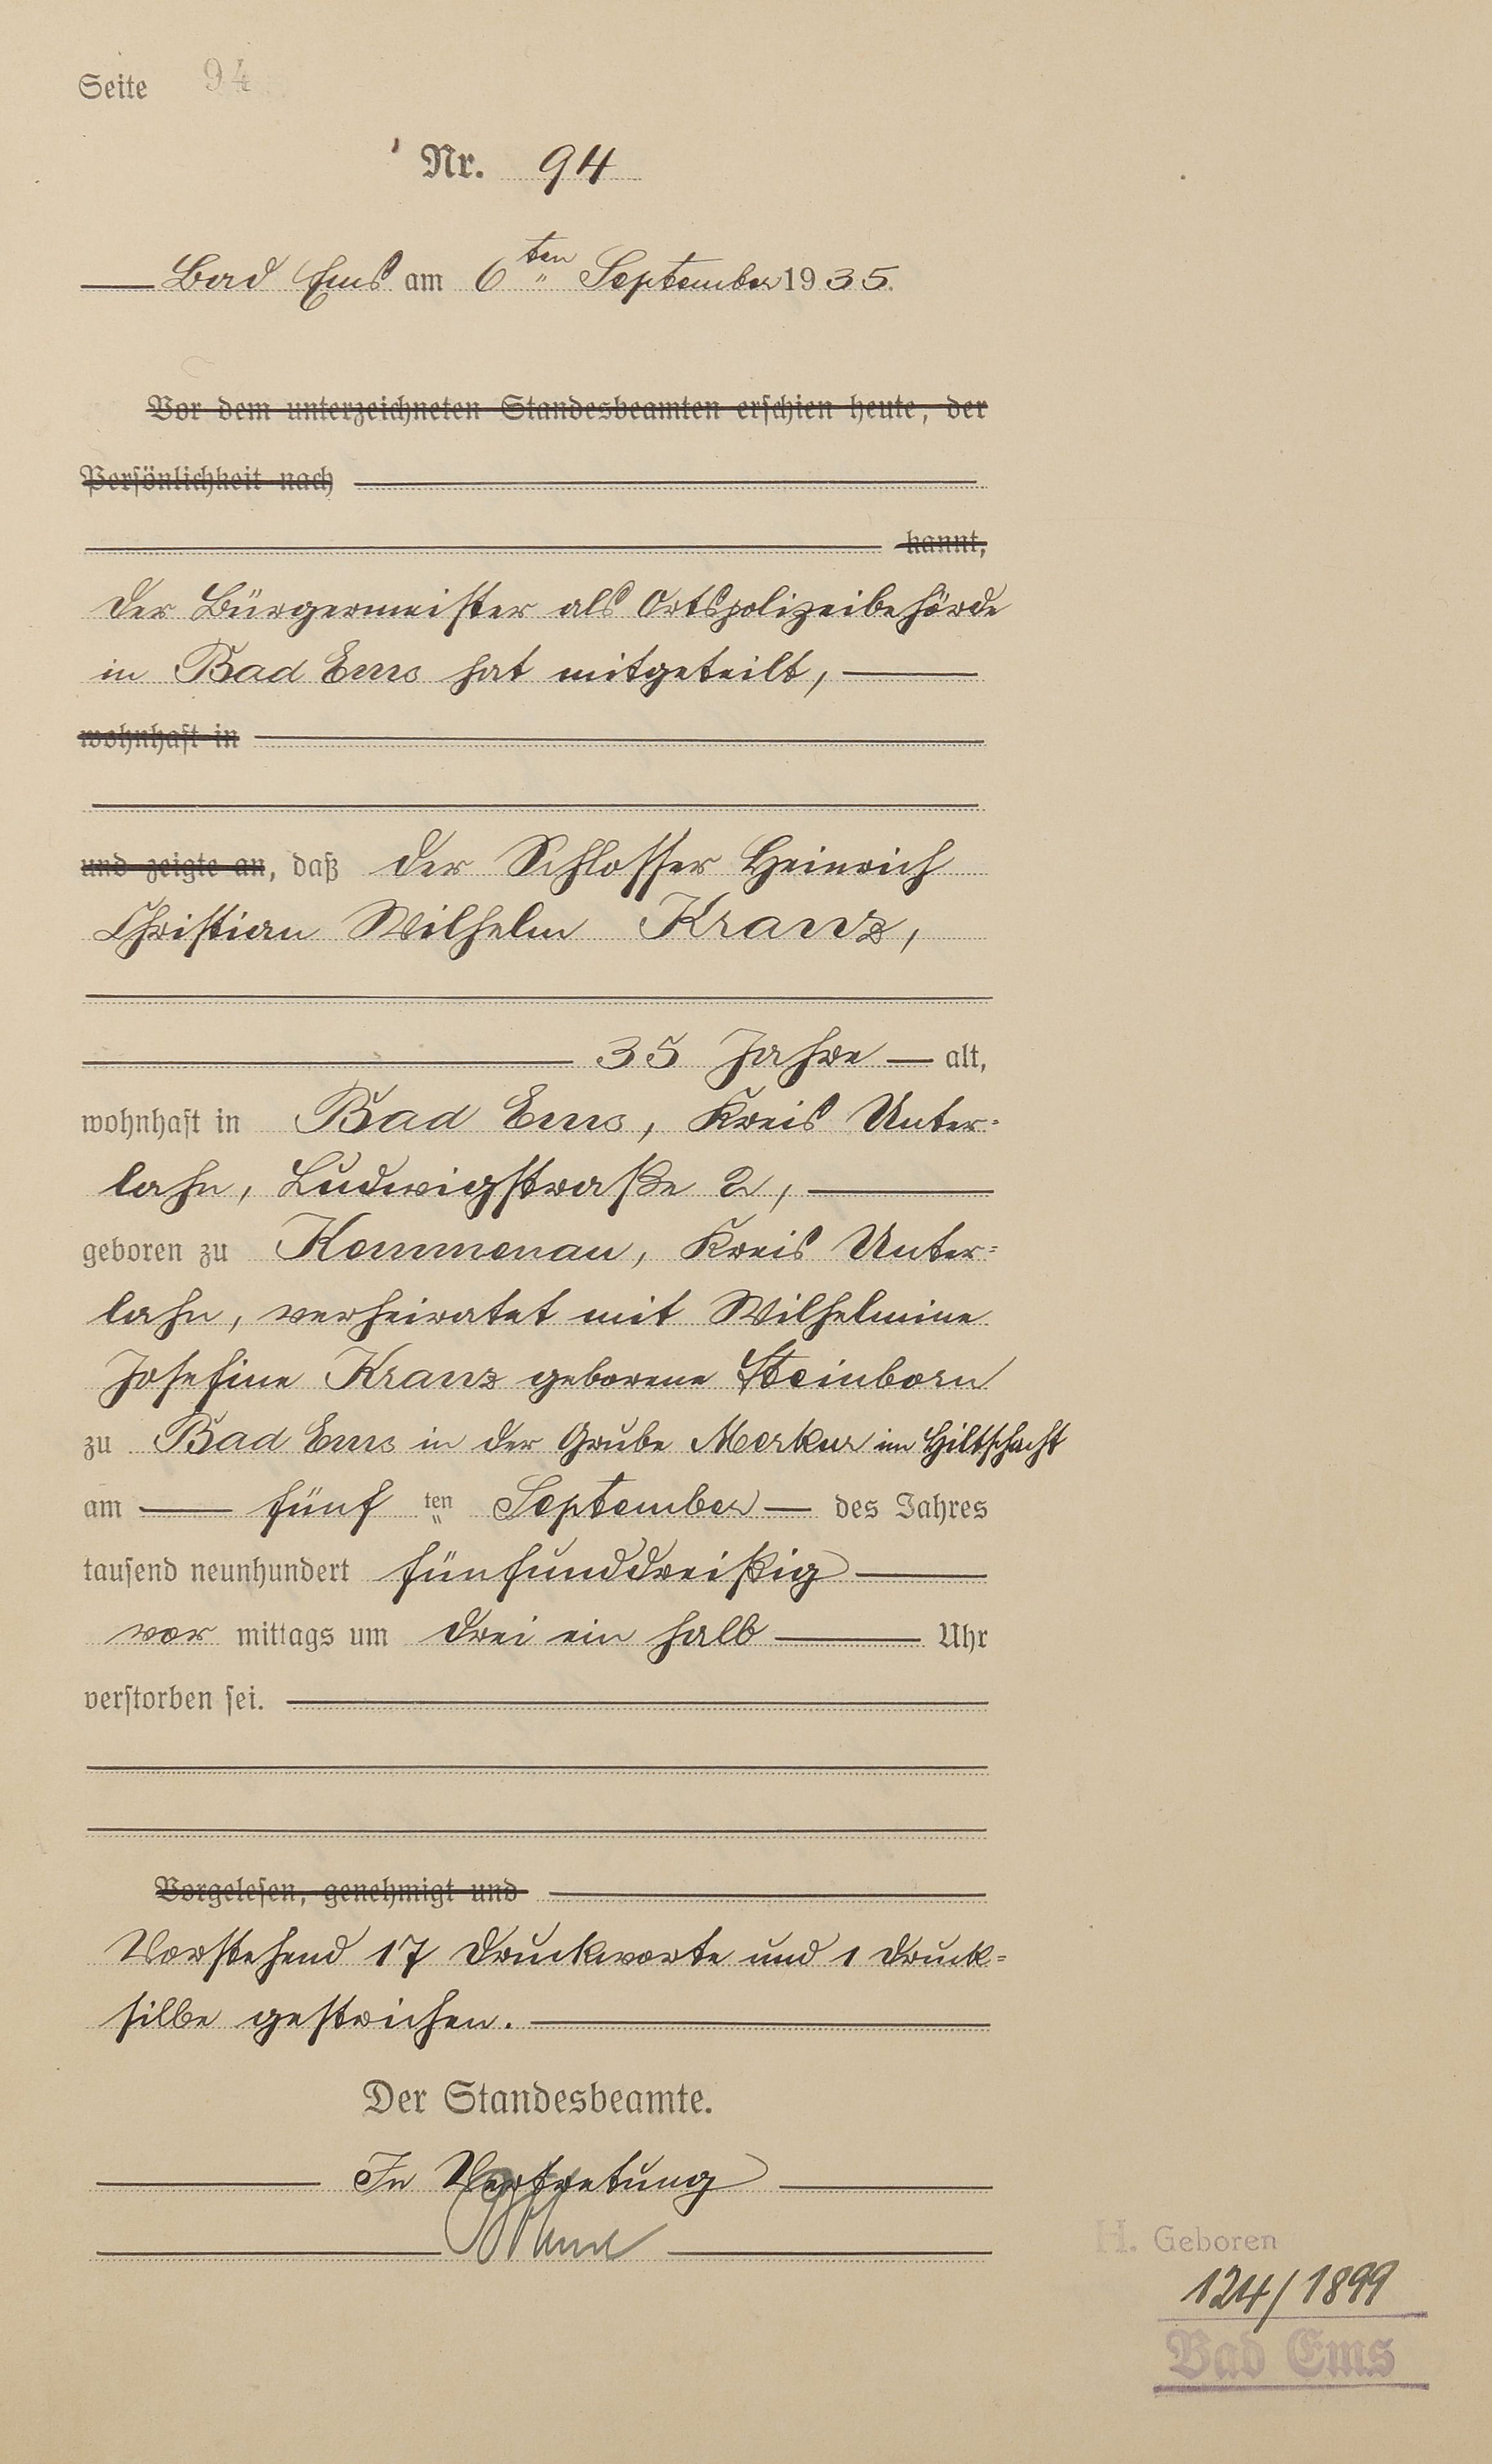 Seite 94
Nr. 94
Bad Ems am 6ten September 1935.
Vor dem unterzeichneten Standesbeamten erschien heute, der
Persönlichkeit nach
kannt,
Der Bürgermeister als Ortspolizeibehörde
in Bad Ems hat mitgeteilt,
wohnhaft in
und zeigte an, daß der Schlosser Heinrich
Christian Wilhelm Kranz,
35 Jahre alt,
wohnhaft in Bad Ems, Kreis Unter=
lahn, Ludwigstraße 2,
geboren zu Kemmenau, Kreis Unter=
lahn, verheiratet mit Wilhelmine
Josefine Kranz geborene Steinborn
zu Bad Ems in der Grube Merkur im Hiltschacht
am fünf ten September des Jahres
tausend neunhundert fünfunddreißig
vor mittags um drei ein halb Uhr
verstorben sei.
Vorgelesen, genehmigt und
Vorstehend 17 Druckworte und 1 Druck=
silbe gestrichen.
Der Standesbeamte.
In Vertretung
H. Geboren
124/1899
Bad Ems